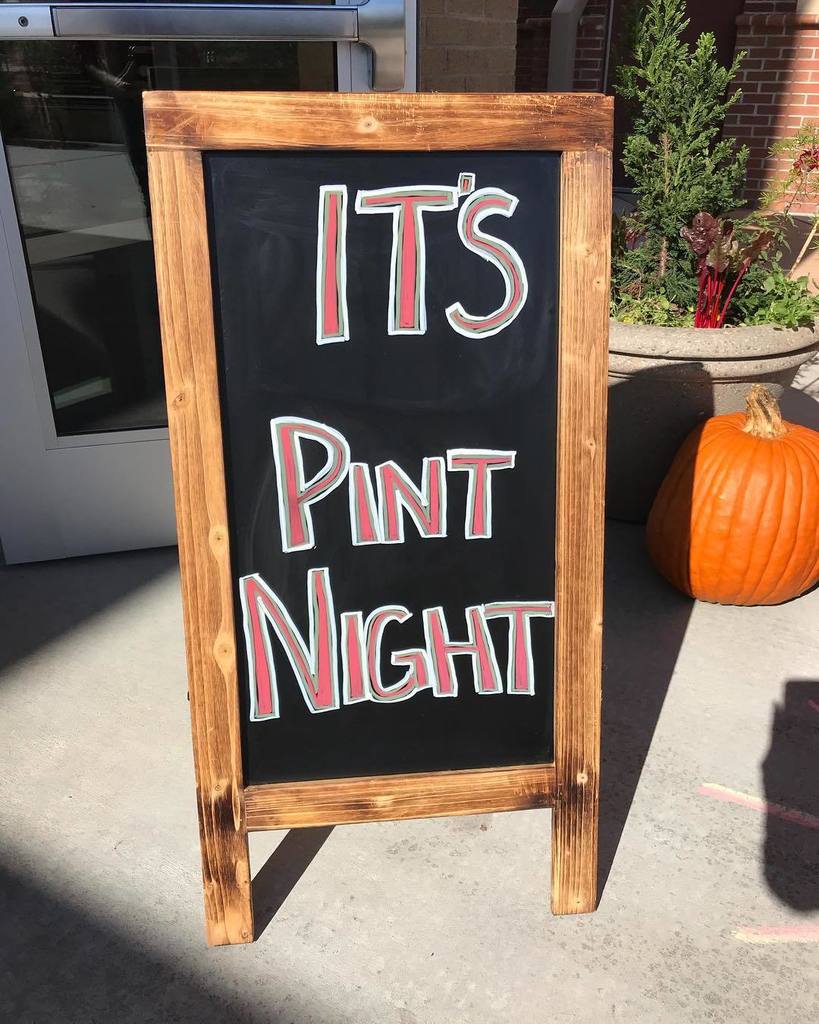 IT'S
PINT
NIGHT